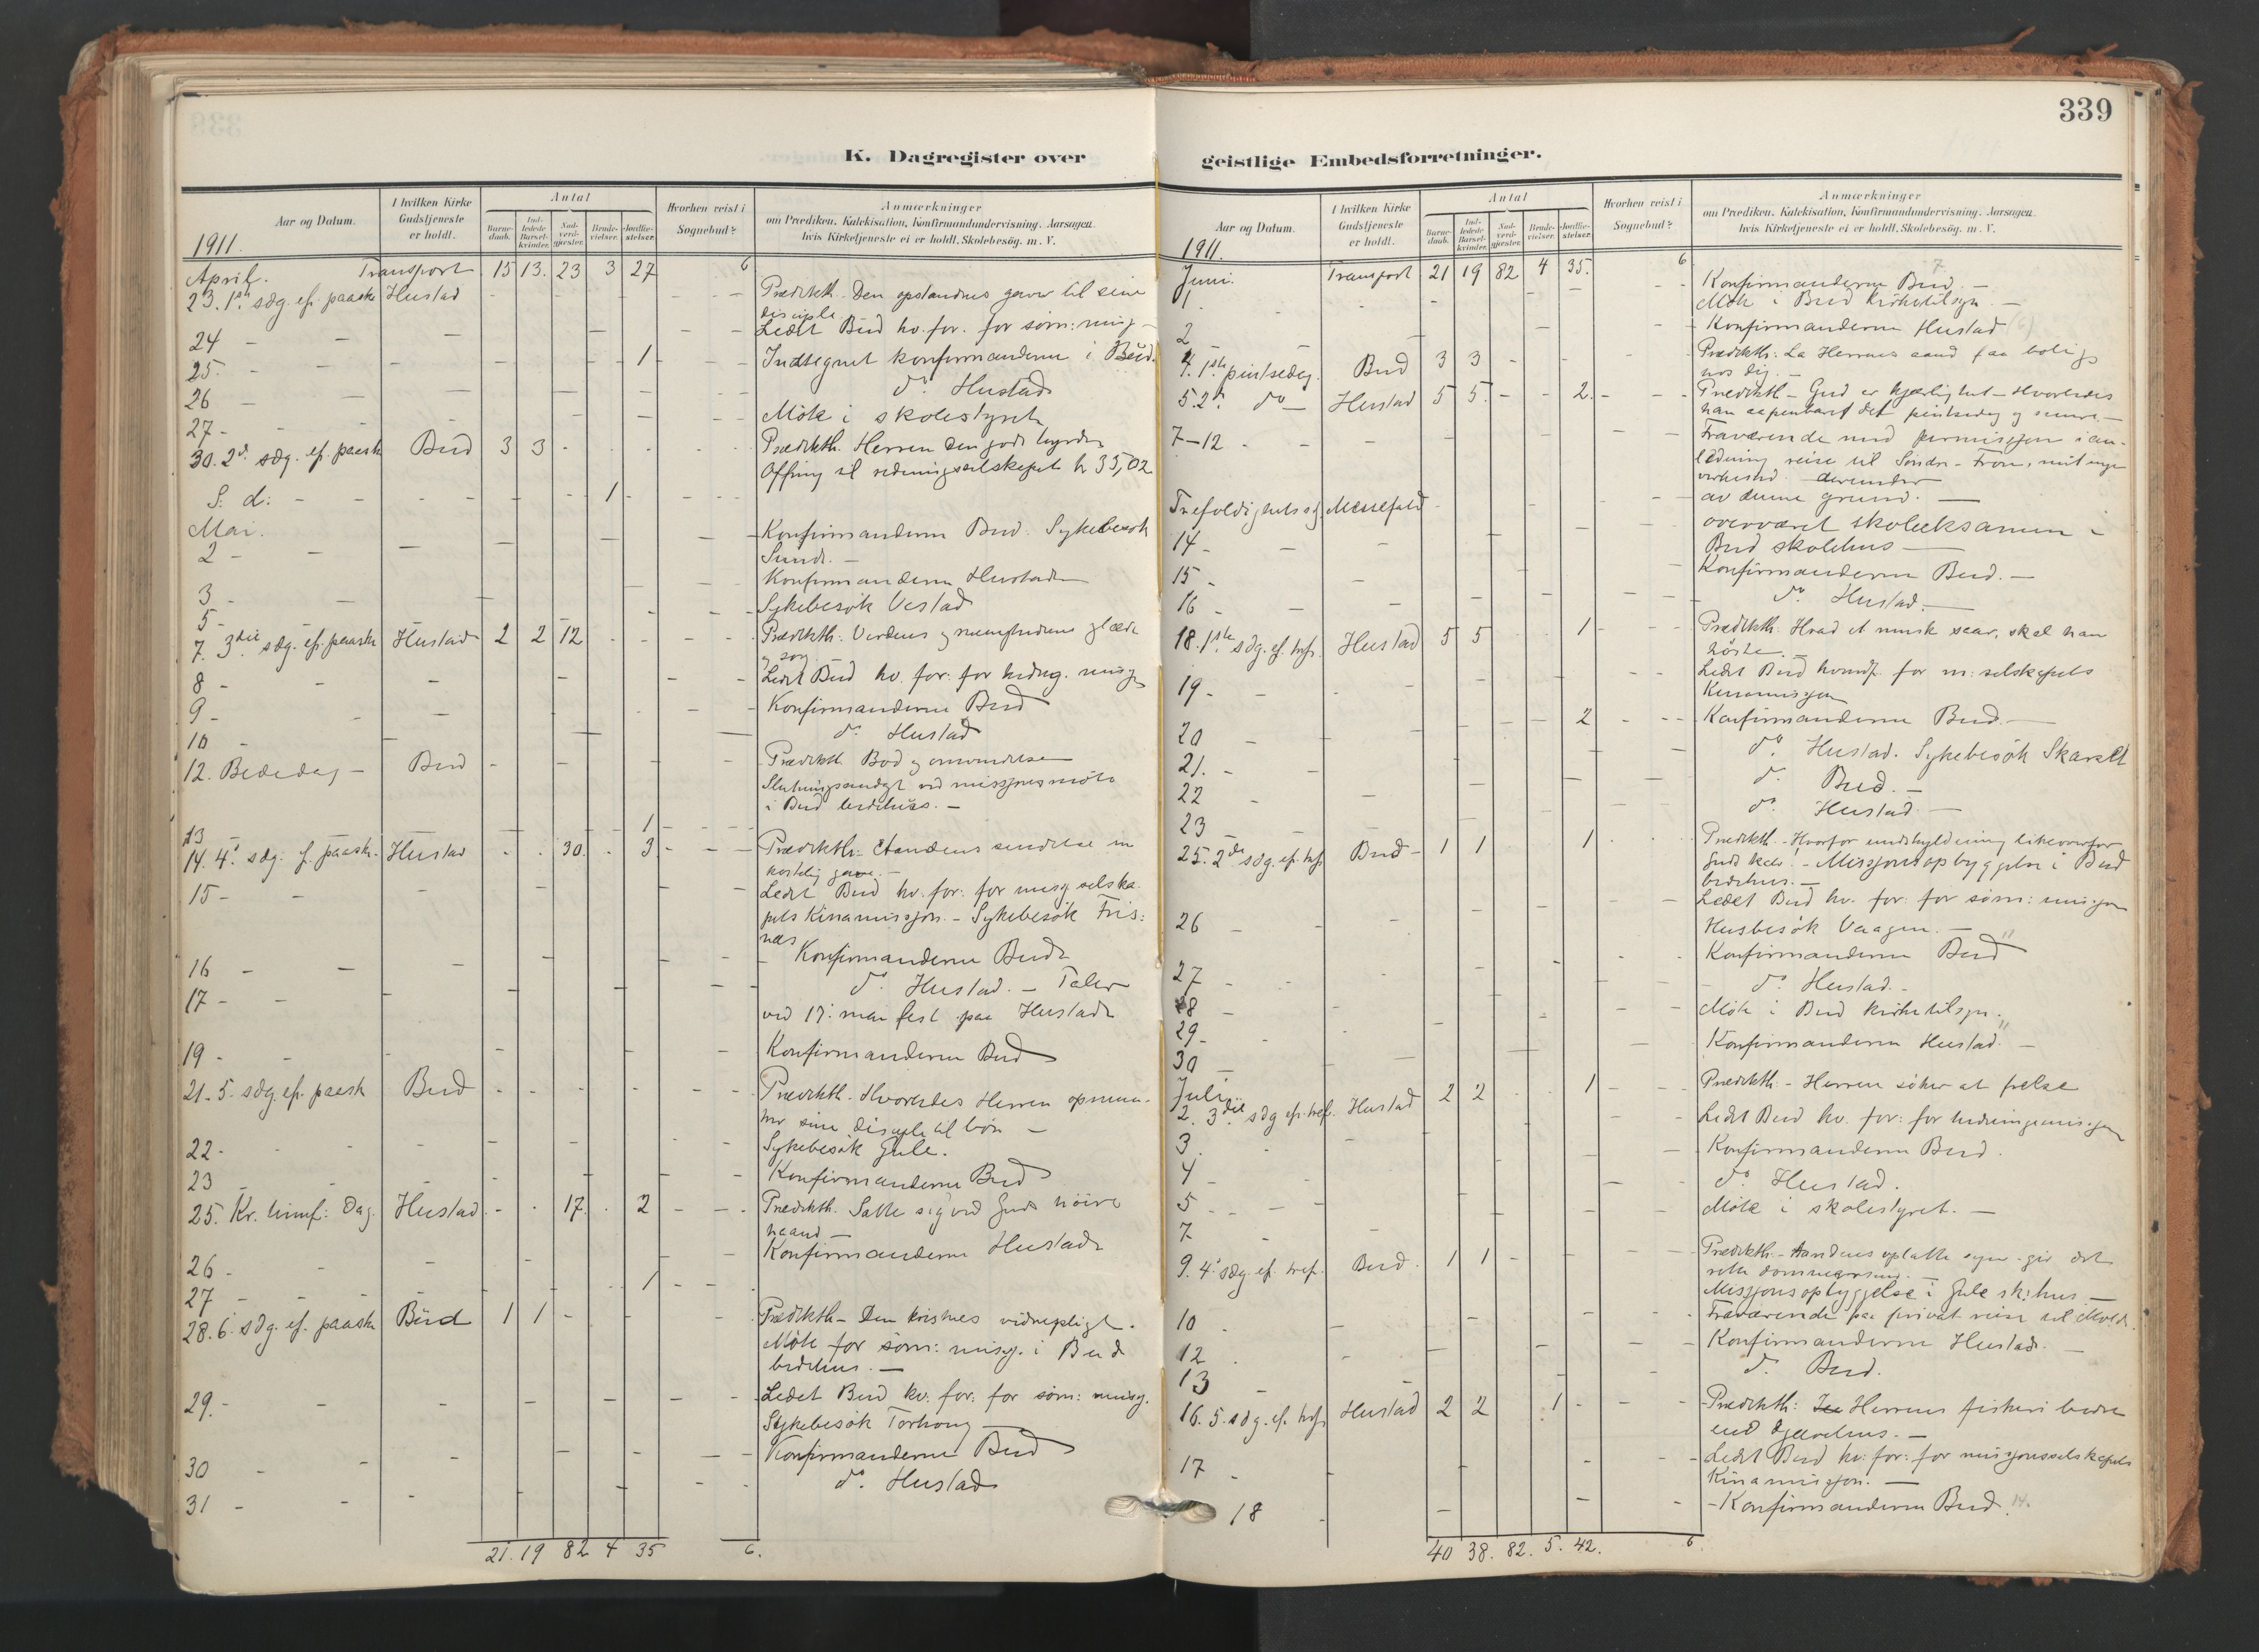 339
K. Dagregister over
Aar og Datum.
I hvilken Kirke Gudstjeneste er holdt.
Antal
Barnedaab.
Indledede Barselkvinder.
Nadverdgjester.
Brudevielser.
Jordfæstelser.
Hvorhen reist i Sognebud?
Anmærkninger
om Prædiken, Katekisation, Konfirmandundervisning, Aarsagen,
hvis Kirketjeneste ei er holdt, Skolebesøg. m. V.
1911.
April. Transport 15 13. 23 3 27 6
23. 1ste sdg. ef. paaske Hustad - - - Prædikth. Den opstandnes gaver til sine
disciple.
24 - - - Ledet Bud kv. for. for søm: misj -
25. - - - 1 - Indsegnet konfirmanderne i Bud.
26 - - - do Hustad
27 - - - Møte i skolestyret
30. 2d. sdg. ef. paaske Bud 3 3 - - - Prædikth. Herren den gode hyrde
Offring til redningsselskapet kr 35,02
S. d. - - - 1 -
Mai.
2 - - - Konfirmanderne Bud. Sykebesøk
Sund. -
3 - - - Konfirmanderne Hustad
5 - - - Sykebesøk Vestad
7. 3die sdg. ef. paaske Hustad 2 2 12 - - - Prædikth: Verdens og glæde
og sorg
8 - - - Ledet Bud kv. for: for hedng. misj
9 - - - Konfirmanderne Bud
10 - - - do Hustad
12. Bededag - Bud - - - Prædikth. Bod og omvendelse
Slutningsandagt ved missjonsmøte
i Bud bedehus. -
13 1 - -
14. 4. sdg. ef. paaske. Hustad - - 30 - 3 - - Prædikth: Aandens sendelse en
kostelig gave. -
15 - - - Ledet Bud kv. for: for misj selska-
pets Kinamissjon. - Sykebesøk Fris:
næs
16 - - - Konfirmanderne Bud
17 - - - do Hustad. - Taler
ved 17: mai fest paa Hustad
19 - - - Konfirmanderne Bud
21. 5. sdg. ef. paaske Bud - - - Prædikth. Hvorledes Herren opmun-
trer sine disciple til bøn -
22 - - - Sykebesøk Gule.
23 - - - Konfirmanderne Bud
25. Kr. himf: Dag. Hustad - - 17 - 2 - - Prædikth. Satte sig ved Guds høire
haand -
26 - - - Konfirmanderne Hustad
27 - - - 1 - -
28. 6. sdg. ef. paaske Bud 1 1 - - Prædikth - Den kristnes vidnepligt.
Møte for søm: misj. i Bud
bedehus. -
29. - - - Ledet Bud kv: for: for søm: misj.
Sykebesøk Torhong
30 - - - Konfirmanderne Bud
31 - - - do Hustad
21. 19 82 4 35 6.
geistlige Embedsforretninger.
Aar og Datum.
I hvilken Kirke Gudstjeneste er holdt.
Antal
Barnedaab.
Indledede Barselkvinder.
Nadverdgjester.
Brudevielser.
Jordfæstelser.
Hvorhen reist i Sognebud?
Anmærkninger
om Prædiken, Katekisation, Konfirmandundervisning, Aarsagen,
hvis Kirketjeneste ei er holdt, Skolebesøg. m. V.
1911.
Juni. Transport 21 19 82 4 35. 6
1 - - - Konfirmanderne Bud. - 7
Møte i Bud kirketilsyn. -
2 - - - Konfirmanderne Hustad (6)
4. 1ste pintsedag. Bud 3 3 - - Prædikth: La Herrens aand faa bolig
hos dig. -
5. 2d. do - Hustad 5 5. - - 2. - - Prædikth - Gud er kjærlighet - Hvorledes
han aapenbaret det pintsedag og senere -
7-12 - - - Fraværende med permisjon i an-
ledning reise til Søndre-Fron,
av denne grund. -
Trefoldighets sdg. Messefald
14 - - - overværet skoleeksamen i
Bud skolehus
15 - - - Konfirmanderne Bud. -
16 - - - do Hustad. -
18. 1ste sdg. ef. tref. Hustad 5 5 1 - - Prædikth. Hvad et mensk saar, skal han
høste. -
19 - - - Ledet Bud kvindf. for m: selskapets
Kinamissjon
20 - - - 2 - - Konfirmanderne Bud. -
21. - - - do Hustad. Sykebesøk Skarset
22 - - - do Bud. -
23 - - - do Hustad. -
25. 2den sdg. ef. tref. Bud - 1 1 1 - Prædikth. - Hvorfor undskyldning likeoverfor
Guds kald. - Missjonsopbyggelse i Bud
bedehus. -
26 - - - Ledet Bud kv. for: for søm: misjon
Husbesøk Vaagen. -
27 - - - Konfirmanderne Bud
28 - - - do Hustad. -
29 - - - Møte i Bud kirketilsyn.
30 - - - Konfirmanderne Hustad. -
Juli.
2. 3die sdg ef. tref. Hustad 2 2 1 - - Prædikth. - Herren søker at frelse
3. - - - Ledet Bud kv. for: for hedningemisjon
4 - - - Konfirmanderne Bud.
5 - - - do Hustad.
7. - - - Møte i skolestyret. -
9. 4. sdg. ef. tref. Bud. 1 1 - Prædikth. - Aandens oplatte syn gir det
rette
Missjonsopbyggelse i Gule sk: hus -
10 - - - Fraværende paa privat reise til Molde.
12 - - - Konfirmanderne Hustad. -
13 - - - do Bud.
16. 5. sdg. ef. tref. Hustad 2 2 1 - - Prædikth: Herrens fiskeri bedre
end djævelens. -
17 - - - Ledet Bud kv: for: for misjonsselskapets
Kinamissjon. -
18 - - - Konfirmanderne Bud. 14.
40 38. 82. 5. 42. 6